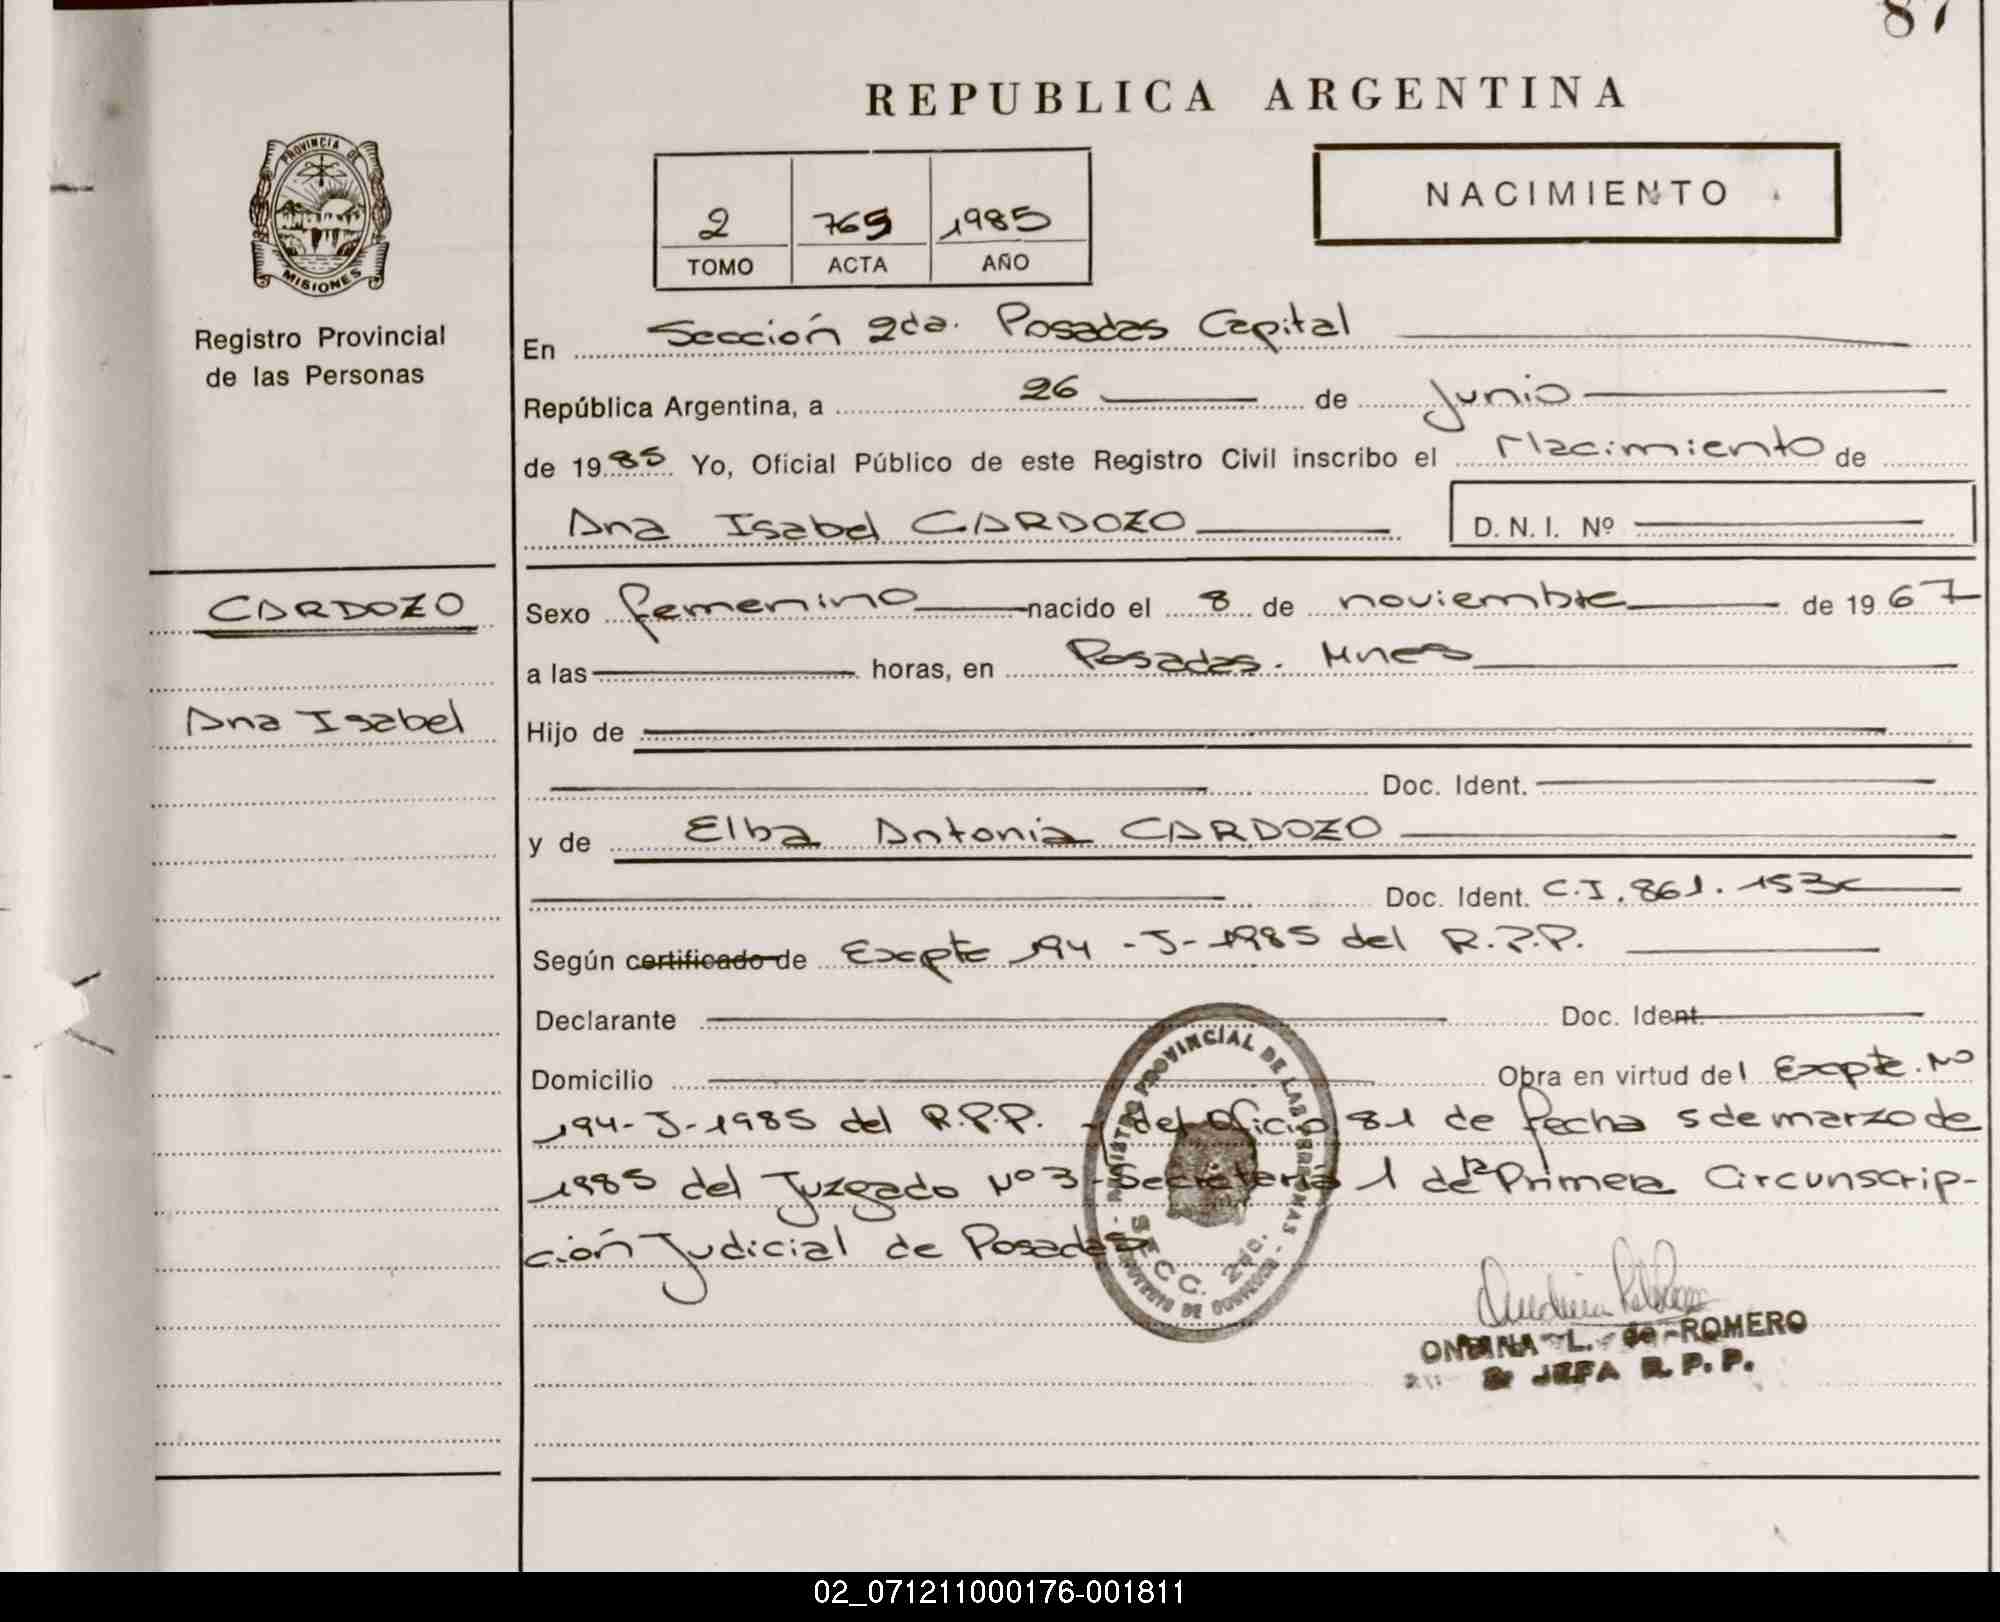 87
REPUBLICA ARGENTINA
PROVINCIA DE
MISIONES
Registro Provincial
de las Personas
2 765 1985
TOMO ACTA AÑO
NACIMIENTO
En Sección 2da. Posadas Capital
República Argentina, a 26 de Junio
de 1985 Yo, Oficial Público de este Registro Civil inscribo el Nacimiento de
Ana Isabel CARDOZO D. N. I. Nº
CARDOZO
Ana Isabel
Sexo femenino nacido el 8 de noviembre de 1967
a las horas, en Posadas. Mnes
Hijo de
Doc. Ident.
y de Elba Antonia CARDOZO
Doc. Ident. C.I. 861.153
Según certificado de Expte 194-J-1985 del R.P.P.
Declarante Doc. Ident.
Domicilio Obra en virtud del Expte. Nº
194-J-1985 del R.P.P. - del Oficio 81 de fecha 5 de marzo de
1985 del Juzgado Nº 3 - Secretaría 1 de la Primera Circunscrip-
ción Judicial de Posadas
PROVINCIAL DE LAS
SECC. 2da.
L. de ROMERO
JEFA R.P.P.
02_071211000176-001811